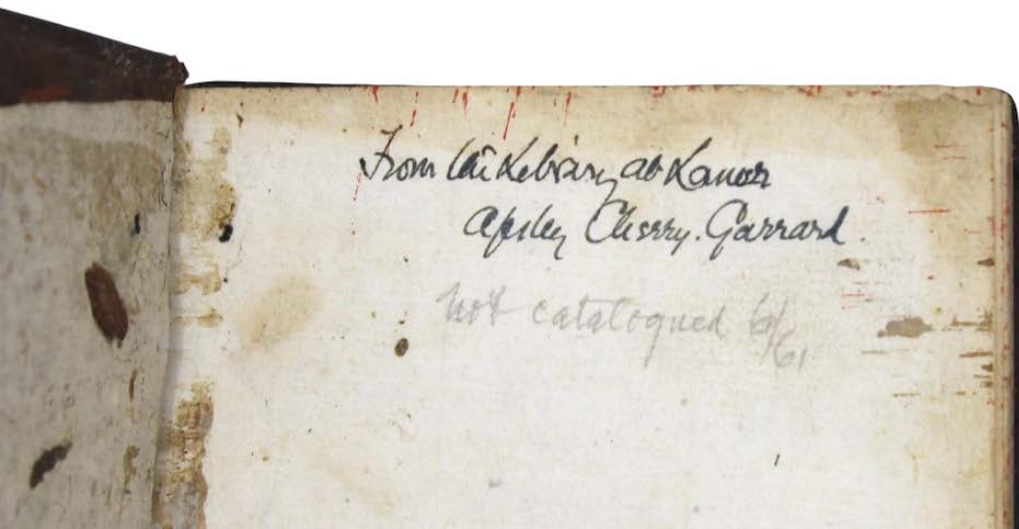 From the Library at Lamer
Apsley Cherry-Garrard.
not catalogued 6/61